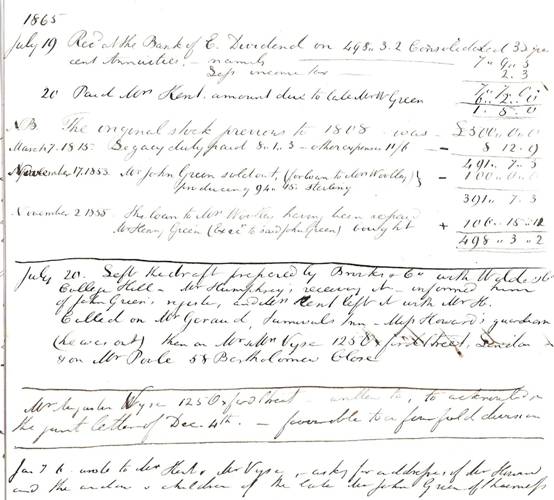 1865
July 19 Recd at the Bank of E. Dividend on 498.. 3. 2 Consolidated 3 per
cent Annuities. - namely 7.. 9.. 5
Less income tax - 2. 3
20 Paid Mrs Kent. amount due to late Mr W Green
1. 5. 0
NB. The original stock previous to 1808 was - £500.. 0.. 0
March 7. 1815. Legacy duty paid 8.. 1.. 3 - other expenses 11/6 - 8 12.. 9
491.. 7.. 3
November 17. 1883. Mr John Green sold out, (for loan to Mr Woolley) - 100.. 0.. 0
producing 94.. 15.. sterling
391.. 7.. 3
November 2 1885. The loan to Mr Woolley having been repaid
Mr Henry Green (Exec to said John Green) bought + 106.. 15.. 11
498.. 3.. 2
July 20. Left the draft prepared by Brooks & Co with
College Hill - Mr Humphreys receiving it - informed him
of John Green's register, and Mrs Kent left it with Mr H.
Called on Mr Geraud, Furnivals Inn - Miss Howard's guardian
(he was out) then on Mr & Mrs Vyse 125 Oxford Street, London
& on Mr Poole 58 Bartholomew Close
Mr Vyse 125 Oxford Street - written to, to acknowledge
the joint letter of Dec. 4th. - favorable to a four fold division
Jan 7 6. wrote to Mr Kent & Mr Vyse, asks for address of Mr
and the & children of the late Mr John Green of